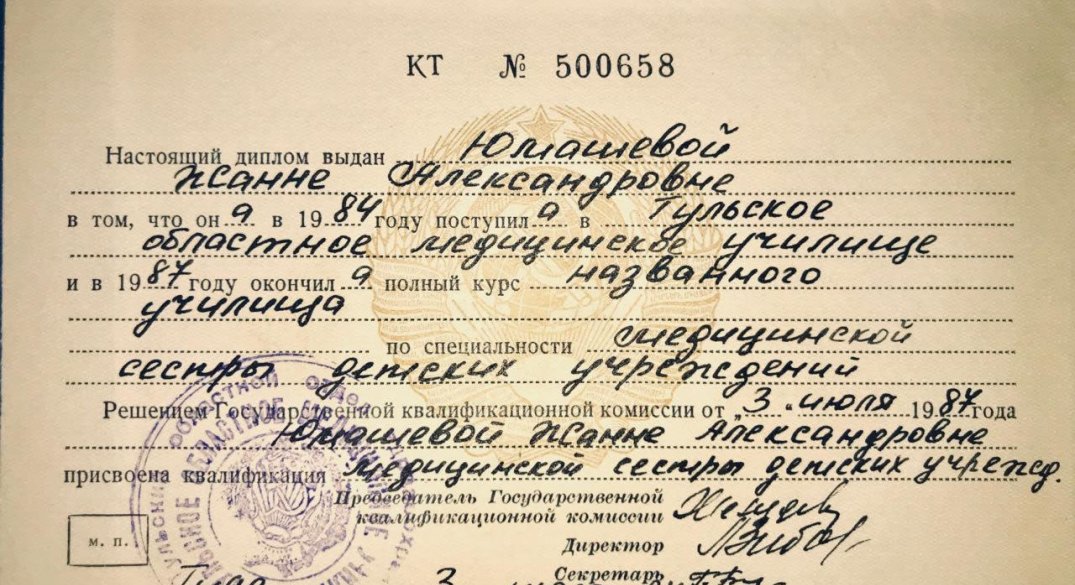 КТ № 500658
Настоящий диплом выдан Юмашевой
Жанне Александровне
в том, что он а в 1984 году поступил а в Тульское
областное медицинское училище
и в 1987 году окончил а полный курс названного
училища
по специальности медицинской
сестры детских учреждений
Решением Государственной квалификационной комиссии от „3" июля 1987 года
Юмашевой Жанне Александровне
присвоена квалификация медицинской сестры детских учрежд.
Председатель Государственной
квалификационной комиссии
м. п.
Директор
Секретарь
3